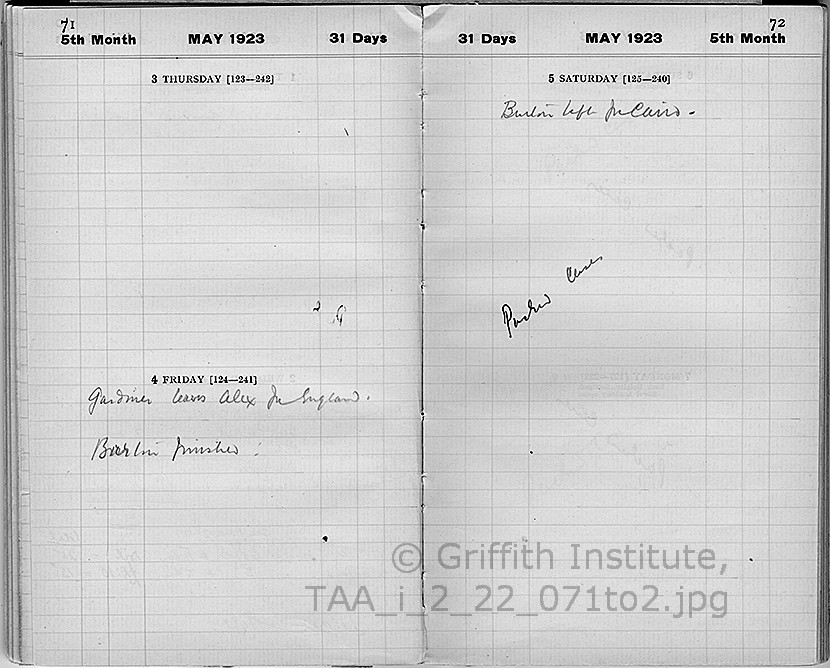 71
5th Month MAY 1923 31 Days
3 THURSDAY [123—242]
4 FRIDAY [124—241]
Gardiner leaves Alex for England.
Burton finished.
72
31 Days MAY 1923 5th Month
5 SATURDAY [125—240]
Burton left for Cairo.
Packed cases
© Griffith Institute,
TAA_i_2_22_071to2.jpg